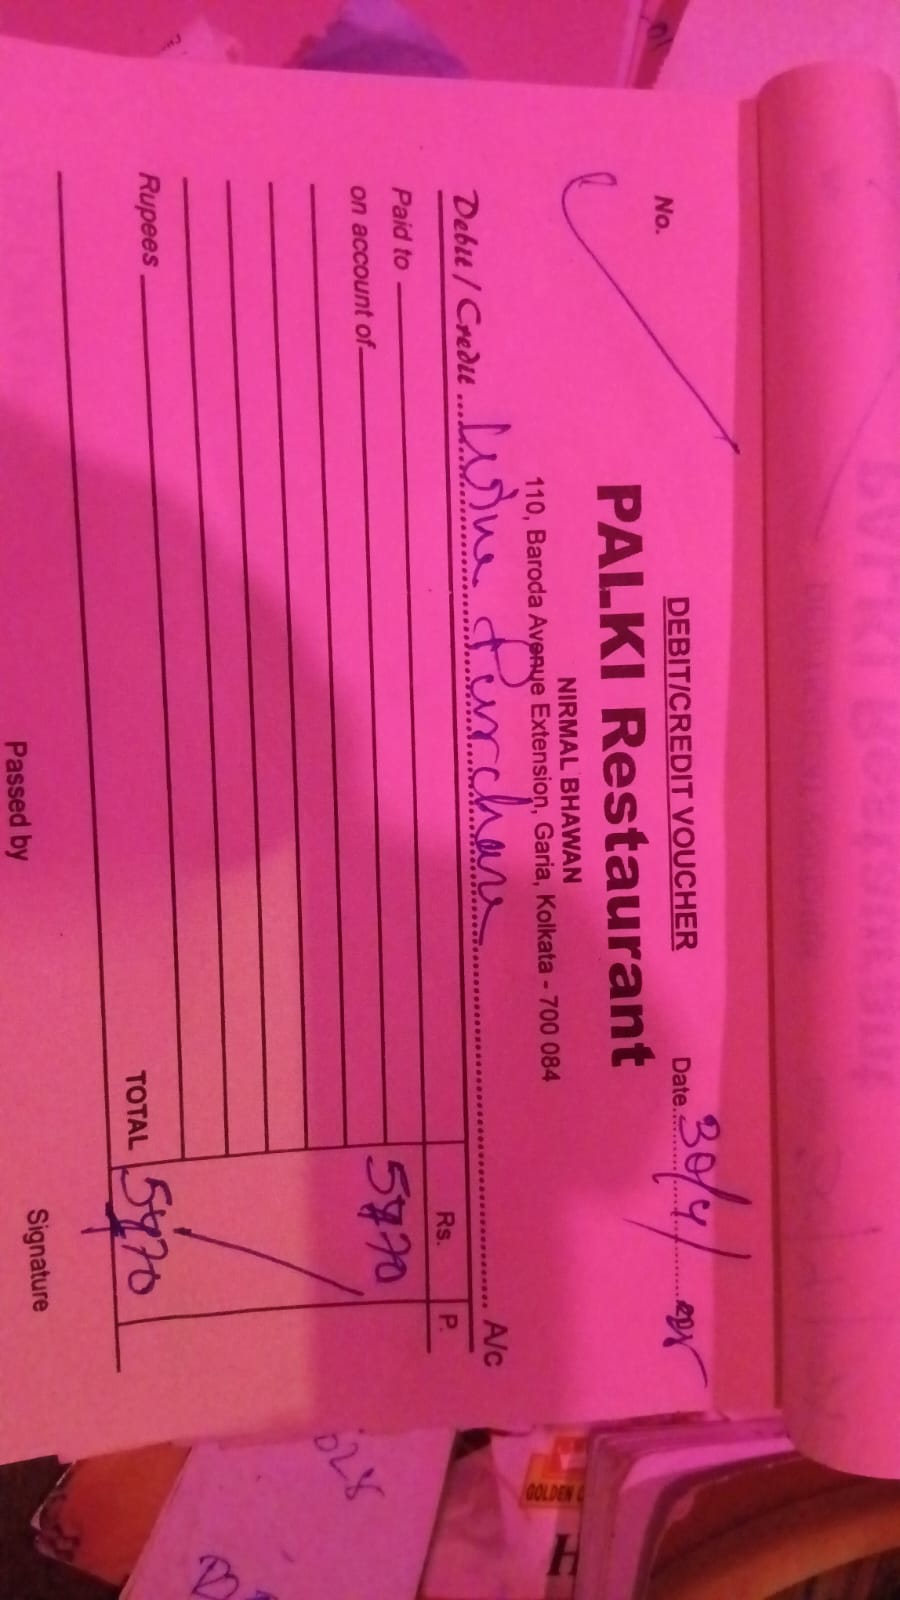 DEBIT/CREDIT VOUCHER
No.
Date 30/4/
PALKI Restaurant
NIRMAL BHAWAN
110, Baroda Avenue Extension, Garia, Kolkata - 700 084
Debit / Credit Purchase A/c
Rs. P.
Paid to
on account of
Rupees
TOTAL
Passed by
Signature
GOLDEN
H